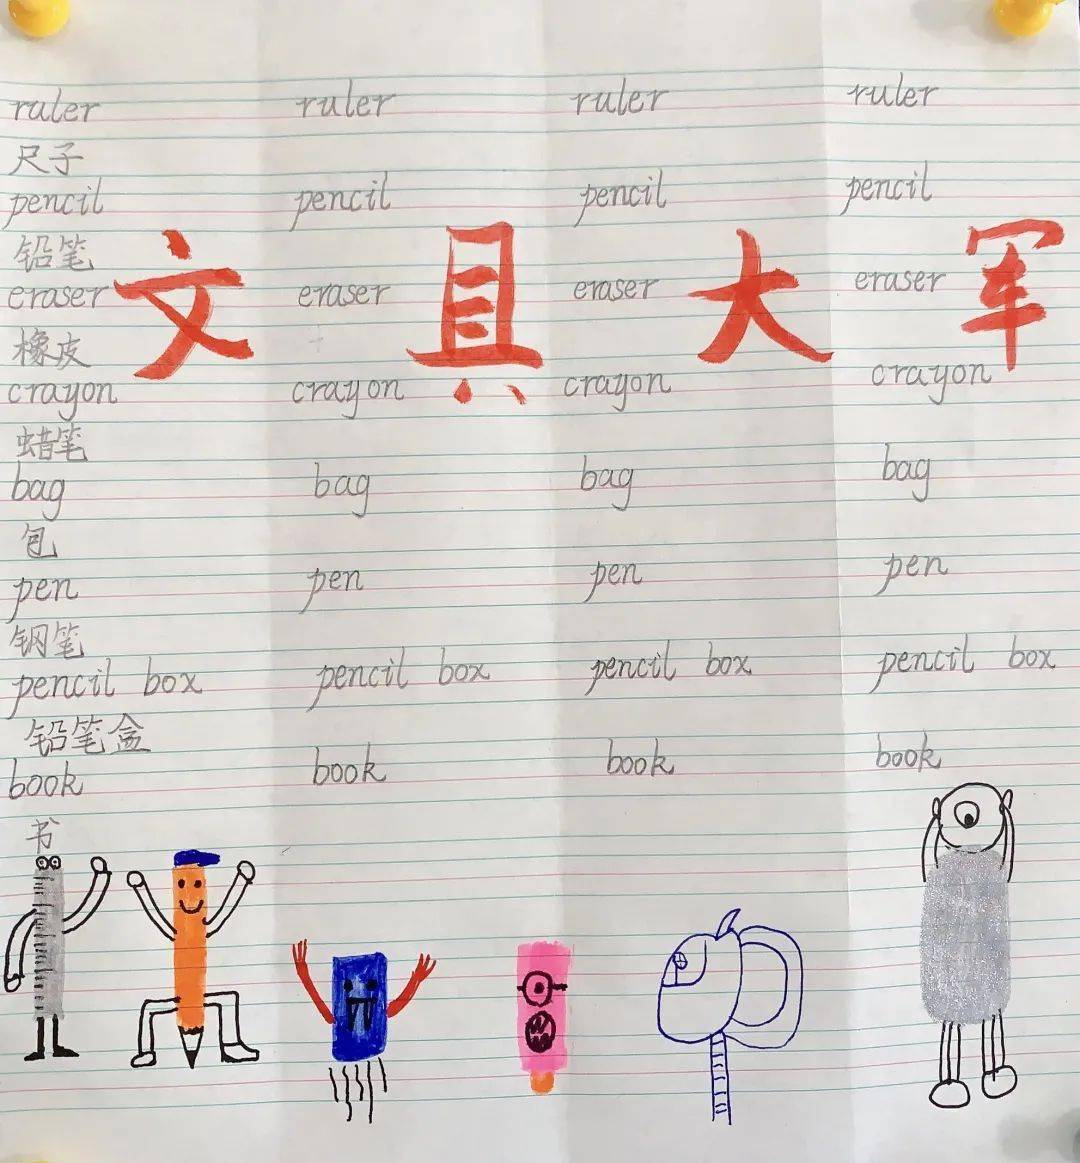 ruler ruler ruler ruler
尺子
pencil pencil pencil pencil
铅笔
文具大军
eraser eraser eraser eraser
橡皮
crayon crayon crayon crayon
蜡笔
bag bag bag bag
包
pen pen pen pen
钢笔
pencil box pencil box pencil box pencil box
铅笔盒
book book book book
书